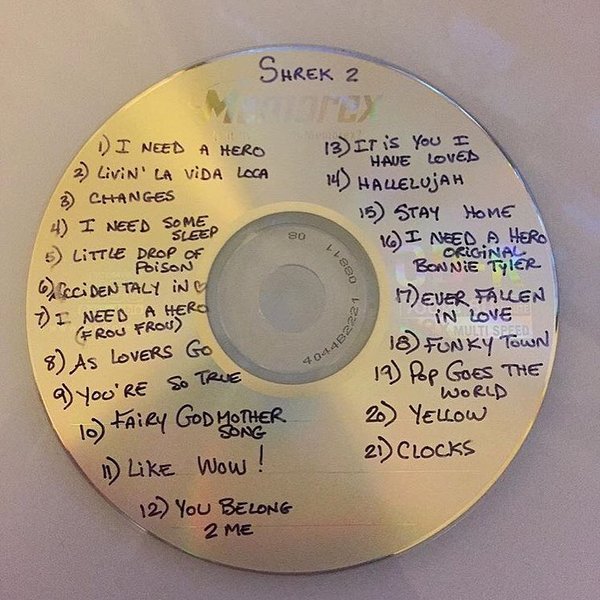 SHREK 2
Memorex
1) I NEED A HERO
2) LIVIN' LA VIDA LOCA
3) CHANGES
4) I NEED SOME
SLEEP
5) LITTLE DROP OF
POISON
6) ACCIDENTALY IN ♡
7) I NEED A HERO
(FROU FROU)
8) AS LOVERS GO
9) YOU'RE SO TRUE
10) FAIRY GODMOTHER
SONG
11) LIKE WOW!
12) YOU BELONG
2 ME
13) IT IS YOU I
HAVE LOVED
14) HALLELUJAH
15) STAY HOME
16) I NEED A HERO
ORIGINAL
BONNIE TYLER
17) EVER FALLEN
IN LOVE
MULTI SPEED
18) FUNKY TOWN
19) POP GOES THE
WORLD
20) YELLOW
21) CLOCKS
4044B2221 08811 80